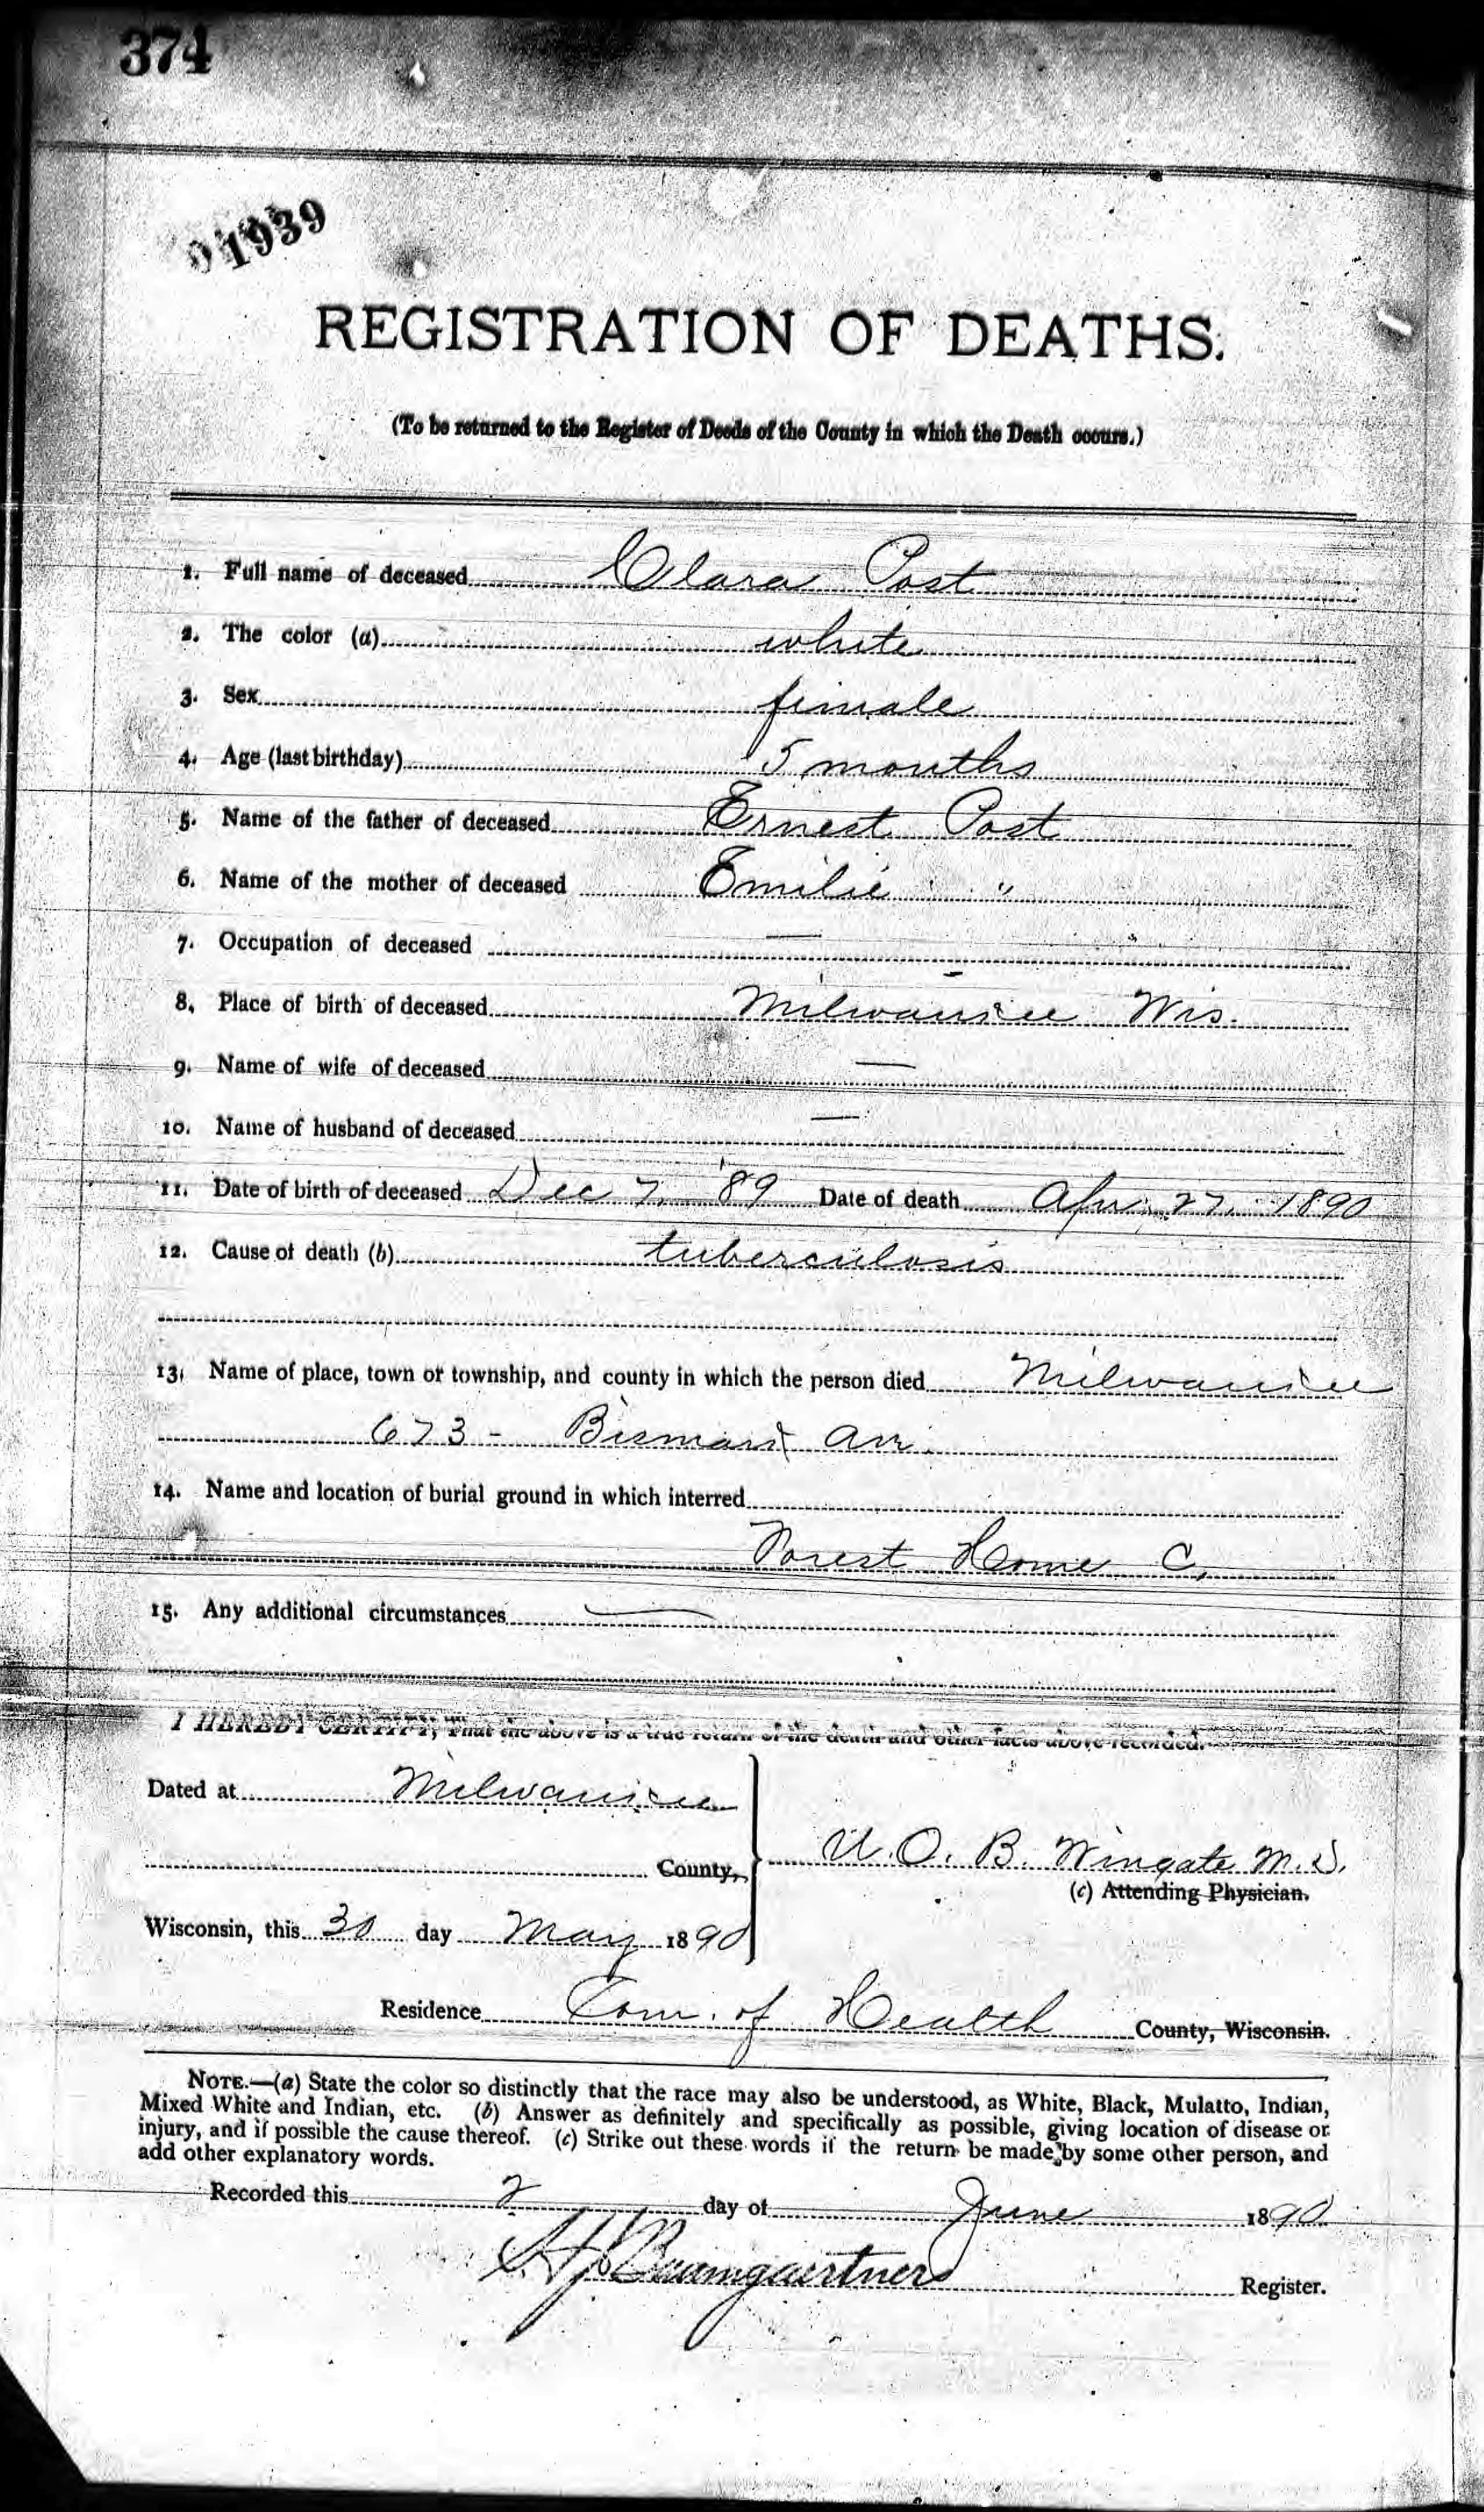 374
01939
REGISTRATION OF DEATHS.
(To be returned to the Register of Deeds of the County in which the Death occurs.)
1. Full name of deceased Clara Post
2. The color (a) white
3. Sex female
4. Age (last birthday) 5 months
5. Name of the father of deceased Ernest Post
6. Name of the mother of deceased Emilie "
7. Occupation of deceased —
8. Place of birth of deceased Milwaukee Wis.
9. Name of wife of deceased —
10. Name of husband of deceased —
11. Date of birth of deceased Dec 7, '89 Date of death Apr. 27, 1890
12. Cause of death (b) tuberculosis
13. Name of place, town or township, and county in which the person died Milwaukee
673 - Bismark Av.
14. Name and location of burial ground in which interred
Forest Home C.
15. Any additional circumstances —
I HEREBY CERTIFY, That the above is a true return of the death and other facts above recorded.
Dated at Milwaukee
County,
U. O. B. Wingate M.D.
(c) Attending Physician.
Wisconsin, this 30 day May 1890
Residence Com. of Health County, Wisconsin.
NOTE.—(a) State the color so distinctly that the race may also be understood, as White, Black, Mulatto, Indian,
Mixed White and Indian, etc. (b) Answer as definitely and specifically as possible, giving location of disease or
injury, and if possible the cause thereof. (c) Strike out these words if the return be made by some other person, and
add other explanatory words.
Recorded this 2 day of June 1890
Baumgaertner Register.